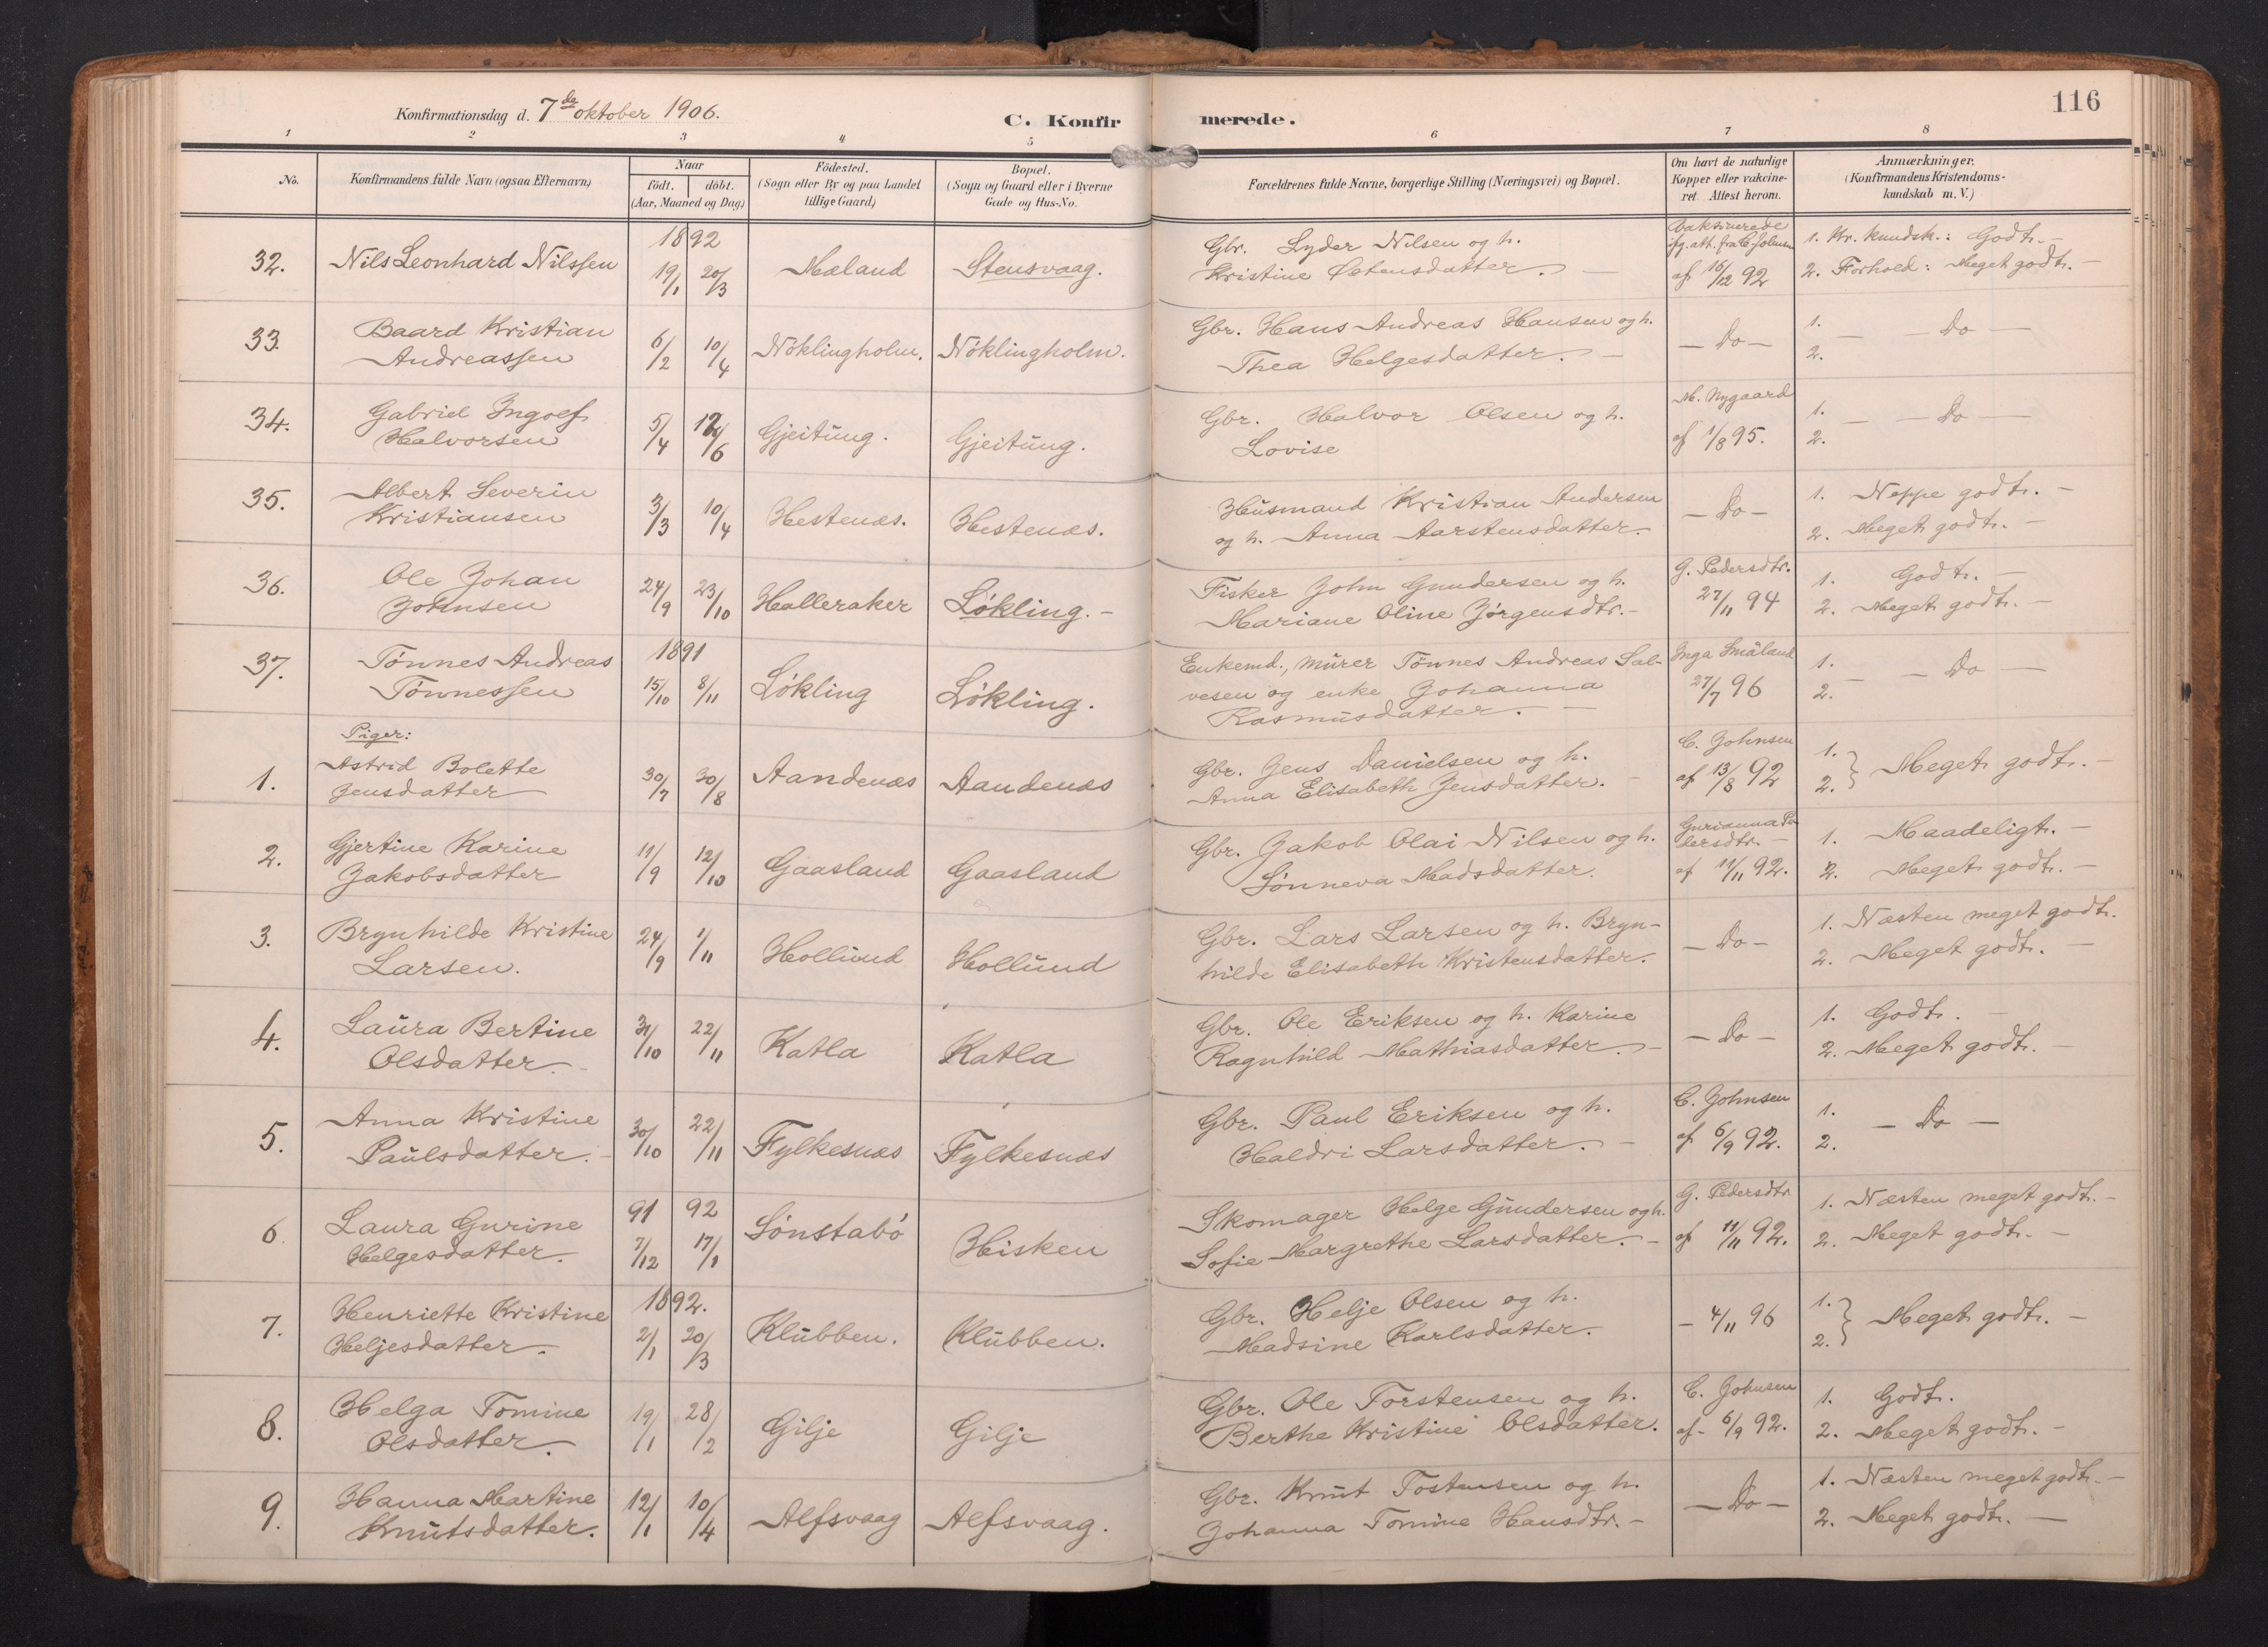 116
Konfirmationsdag d. 7de oktober 1906.
C. Konfirmerede.
1 2 3 4 5 6 7 8
No.
Konfirmandens fulde Navn (ogsaa Efternavn)
Naar
födt. döbt.
(Aar, Maaned og Dag)
Födested.
(Sogn eller By og paa Landet
tillige Gaard)
Bopæl.
(Sogn og Gaard eller i Byerne
Gade og Hus-No.
Forældrenes fulde Navne, borgerlige Stilling (Næringsvei) og Bopæl.
Om havt de naturlige
Kopper eller vakcine-
ret. Attest herom.
Anmærkninger.
(Konfirmandens Kristendoms-
kundskab m. V.)
1892
32. Nils Leonhard Nilssen 19/1 20/3 Mæland Stensvaag.
Gbr. Lyder Nilsen og h.
Kristine Østensdatter. —
Vaksinerede
ifg. att. fra C. Johnsen
af 16/12 92
1. Kr. kundsk.: Godt. —
2. Forhold: Meget godt. —
33. Baard Kristian
Andreassen 6/2 10/4 Nöklingholm. Nöklingholm.
Gbr. Hans Andreas Hansen og h.
Thea Helgesdatter. —
— Do —
1. — Do —
2.
34. Gabriel Ingolf
Halvorsen 5/4 12/6 Gjeitung. Gjeitung.
Gbr. Halvor Olsen og h.
Lovise
M. Nygaard
af 1/8 95.
1. — Do —
2.
35. Albert Severin
Kristiansen 3/3 10/4 Hestenæs. Hestenæs.
Husmand Kristian Andersen
og h. Anna Aarstensdatter. —
— Do —
1. Neppe godt. —
2. Meget godt. —
36. Ole Johan
Johnsen 24/9 23/10 Halleraker Lökling. —
Fisker John Gundersen og h.
Mariane Oline Jörgensdtr. —
G. Pedersdtr.
27/11 94
1. Godt. —
2. Meget godt. —
1891
37. Tönnes Andreas
Tönnessen 15/10 8/11 Lökling Lökling.
Enkemd., murer Tönnes Andreas Sal-
vesen og enke Johanna
Rasmusdatter. —
Inga Småland
27/7 96
1. — Do —
2.
Piger:
1. Astrid Bolette
Jensdatter 30/7 30/8 Aandenæs Aandenæs
Gbr. Jens Danielsen og h.
Anna Elisabeth Jensdatter. —
C. Johnsen
af 13/8 92
1. } Meget godt. —
2.
2. Gjertine Karine
Jakobsdatter 11/9 12/10 Gaasland Gaasland
Gbr. Jakob Olai Nilsen og h.
Sönneva Madsdatter.
Gurianna Pe
dersdtr. —
af 11/11 92.
1. Maadeligt. —
2. Meget godt. —
3. Brynhilde Kristine
Larsen. 24/9 1/11 Hollund Hollund
Gbr. Lars Larsen og h. Bryn-
hilde Elisabeth Kristensdatter.
— Do —
1. Næsten meget godt.
2. Meget godt. —
4. Laura Bertine
Olsdatter. — 31/10 22/11 Katla Katla
Gbr. Ole Eriksen og h. Karine
Ragnhild Mathiasdatter. —
— Do —
1. Godt. —
2. Meget godt. —
5. Anna Kristine
Paulsdatter. — 30/10 22/11 Fylkesnæs Fylkesnæs
Gbr. Paul Eriksen og h.
Haldri Larsdatter. —
C. Johnsen
af 6/9 92.
1. — Do —
2.
91 92
6. Laura Gurine
Helgesdatter. 7/12 17/1 Sönstabö Hisken
Skomager Helge Gundersen og h.
Sofie Margrethe Larsdatter. —
G. Pedersdtr
af 11/11 92.
1. Næsten meget godt. —
2. Meget godt. —
1892.
7. Henriette Kristine
Heljesdatter. 2/1 20/3 Klubben. Klubben.
Gbr. Helje Olsen og h.
Madsine Karlsdatter.
— 4/11 96
1. } Meget godt. —
2.
8. Helga Tomine
Olsdatter. 19/1 28/2 Gilje Gilje
Gbr. Ole Torstensen og h.
Berthe Kristine Olsdatter.
C. Johnsen
af - 6/9 92.
1. Godt.
2. Meget godt. —
9. Hanna Martine
Knutsdatter. 12/1 10/4 Alfsvaag Alfsvaag.
Gbr. Knut Tostensen og h.
Johanna Tomine Hansdtr. —
— Do —
1. Næsten meget godt. —
2. Meget godt. —